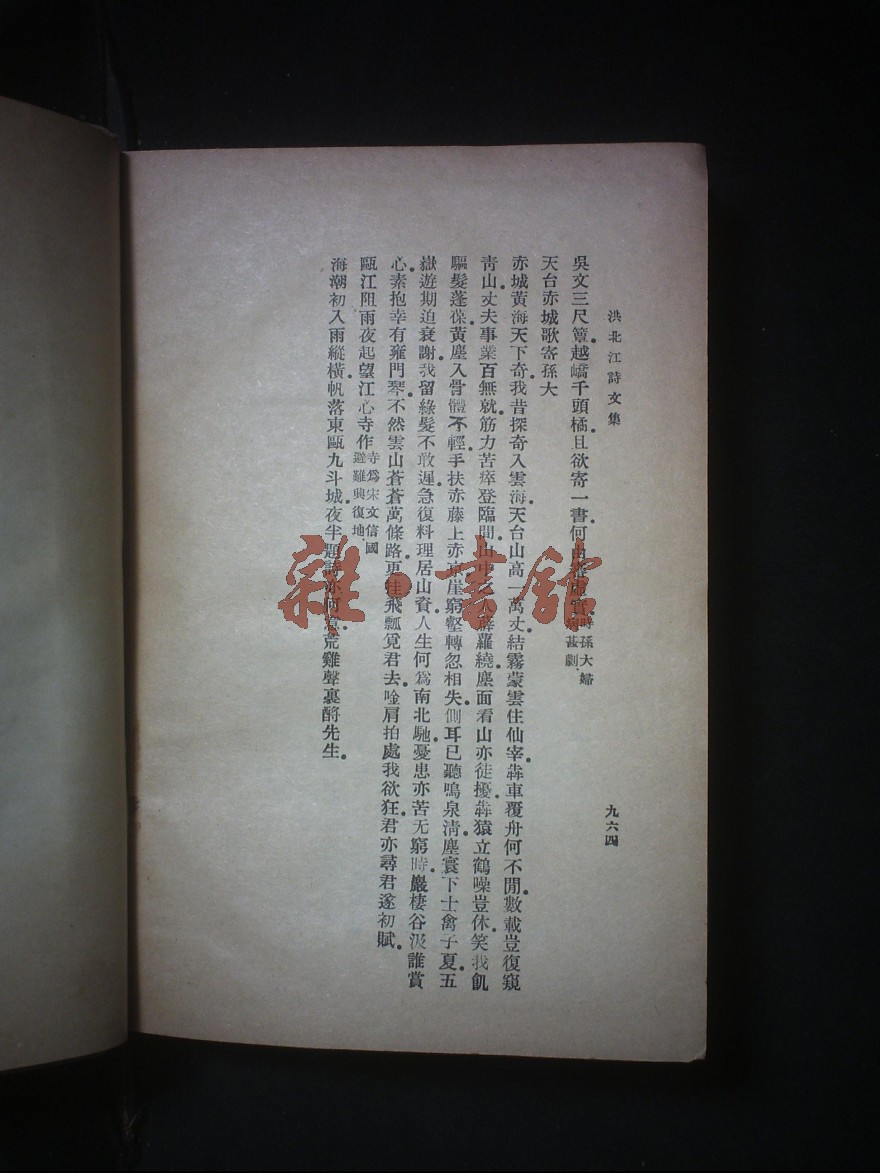 洪北江詩文集
九六四
吳文三尺簟。越嶠千頭橘。且欲寄一書。何由 孫大婦 甚劇、
天台赤城歌寄孫大
赤城黃海天下奇。我昔探奇入雲海。天台山高一萬丈。結霧蒙雲住仙宰。犇車覆舟何不閒。數載豈復窺
青山。丈夫事業百無就。筋力苦瘁登臨間。山中 人薜蘿繞。塵面看山亦徒擾。犇猿立鶴噪豈休。笑我飢
驅髮蓬葆。黃塵入骨體不輕。手扶赤藤上赤京。崖窮壑轉忽相失。側耳已聽鳴泉清。塵寰下士禽子夏。五
嶽遊期迫衰謝。我留綠髮不敢遲。急復料理居山資。人生何為南北馳。憂患亦苦无窮時。巖棲谷汲誰賞
心。素抱幸有雍門琴。不然雲山蒼蒼萬條路。更 飛瓢覓君去。唫肩拍處我欲狂。君亦尋君遂初賦。
甌江阻雨夜起望江心寺作 寺為宋文信國避難興復地、
海潮初入雨縱橫。帆落東甌九斗城。夜半題詩亦何意。荒雞聲裏酹先生。
雜·書館